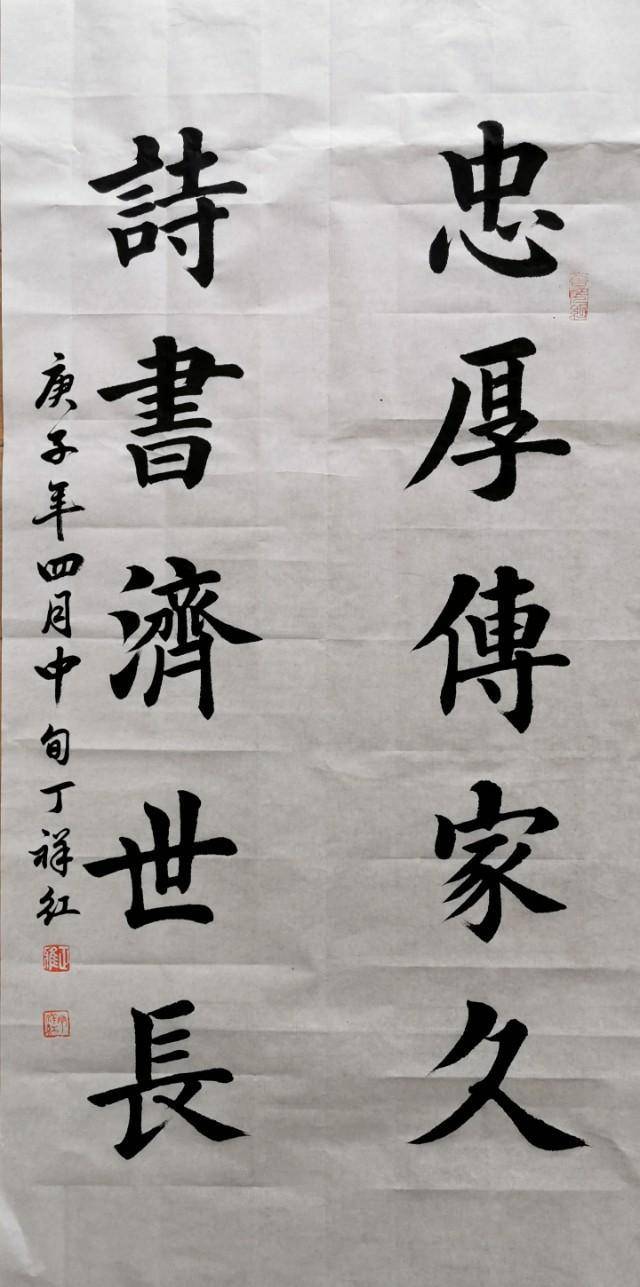 忠厚傳家久
詩書濟世長
庚子年四月中旬丁祥紅